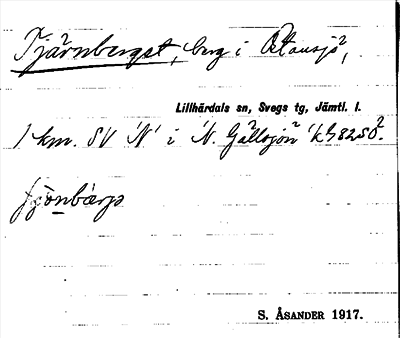 Tjärnberget, berg i Östansjö,
Lillhärdals sn, Svegs tg, Jämtl. l.
1 km. SV 'N' i 'N. Gällsjön'
S. ÅSANDER 1917.